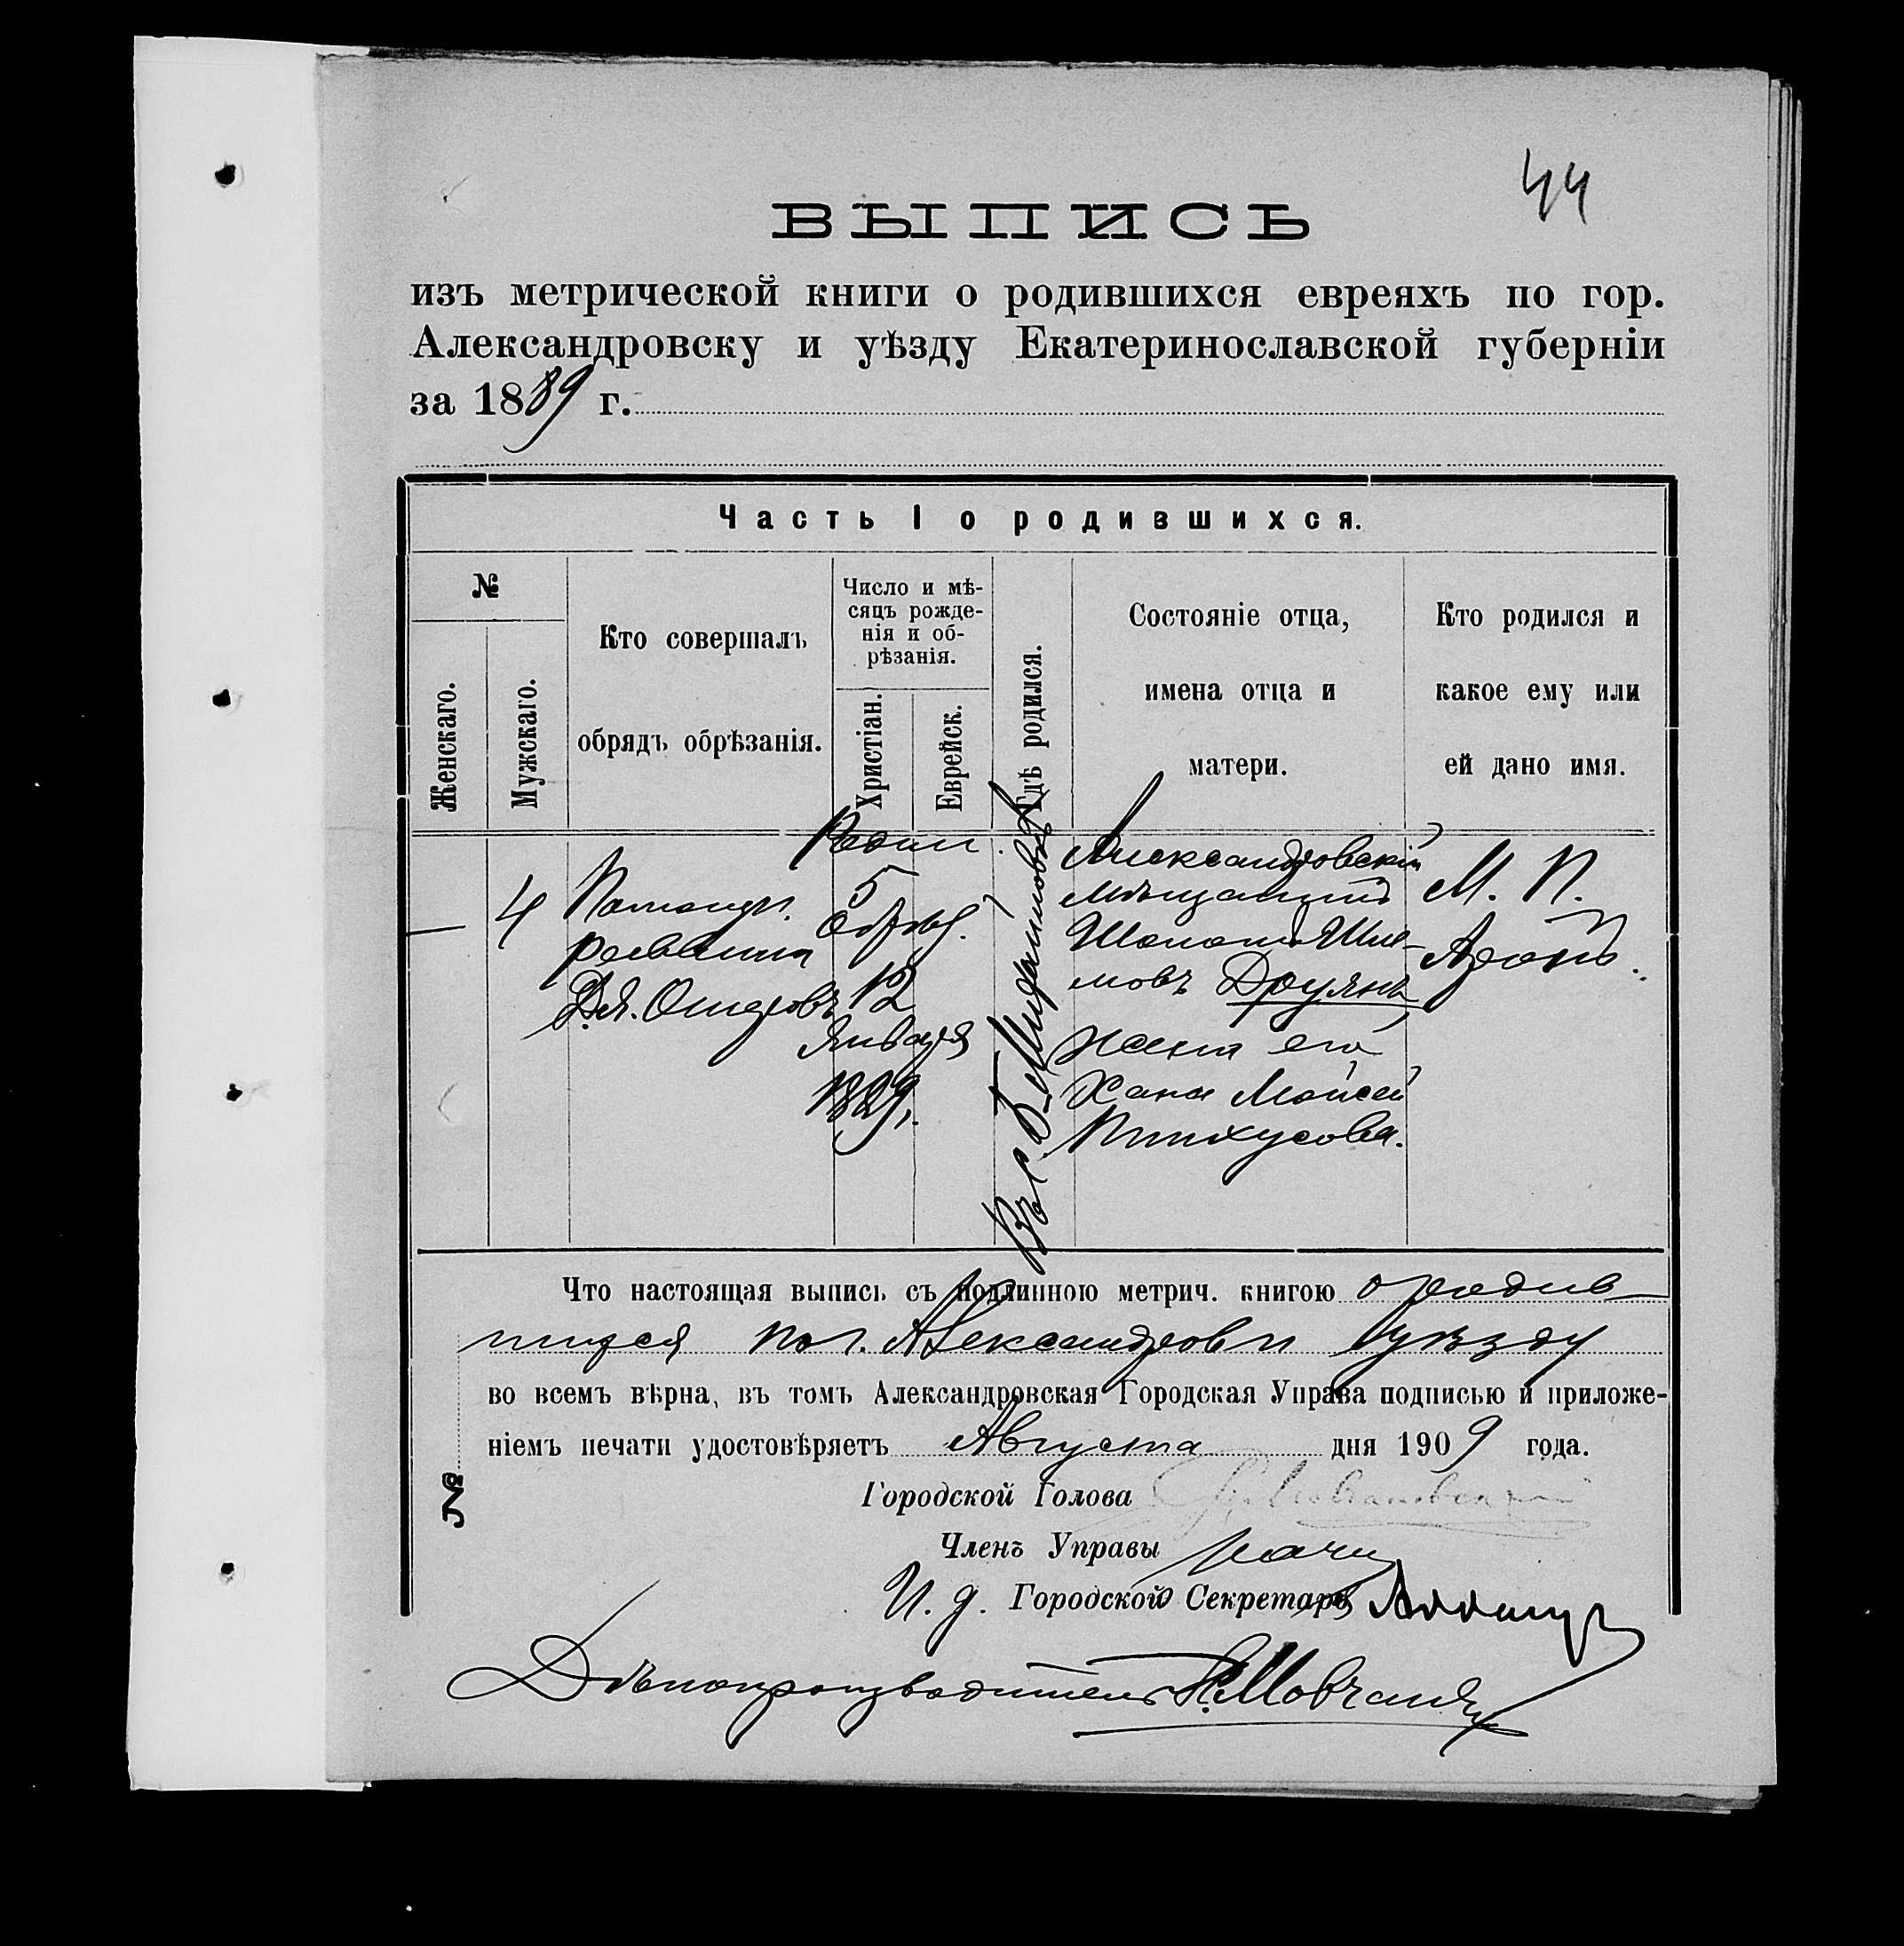 44
ВЫПИСЬ
изъ метрической книги о родившихся евреяхъ по гор.
Александровску и уѣзду Екатеринославской губерніи
за 1889 г.
Часть I о родившихся.
№
Женскаго.
Мужскаго.
Кто совершалъ
обрядъ обрѣзанія.
Число и мѣ-
сяцъ рожде-
нія и об-
рѣзанія.
Христіан.
Еврейск.
Гдѣ родился.
Состояніе отца,
имена отца и
матери.
Кто родился и
какое ему или
ей дано имя.
—
4
Помощн.
раввина
Ошеровъ
Родил.
5
обрѣз.
12
Января
1889 г.
Въ с. Б-
Александровскій
мѣщанинъ
Шолома Шле-
мовъ Друянъ
жена его
Хана Мойсей
Пинхусова.
М. П.
Аронъ.
Что настоящая выпись съ подлинною метрич. книгою о родив-
шихся по г. Александров и уѣзду
во всемъ вѣрна, въ томъ Александровская Городская Управа подписью и приложе-
ніемъ печати удостовѣряетъ Августа дня 1909 года.
№
Городской Голова
Членъ Управы
И. д. Городской Секретарь
Дѣлопроизводитель Мовчан